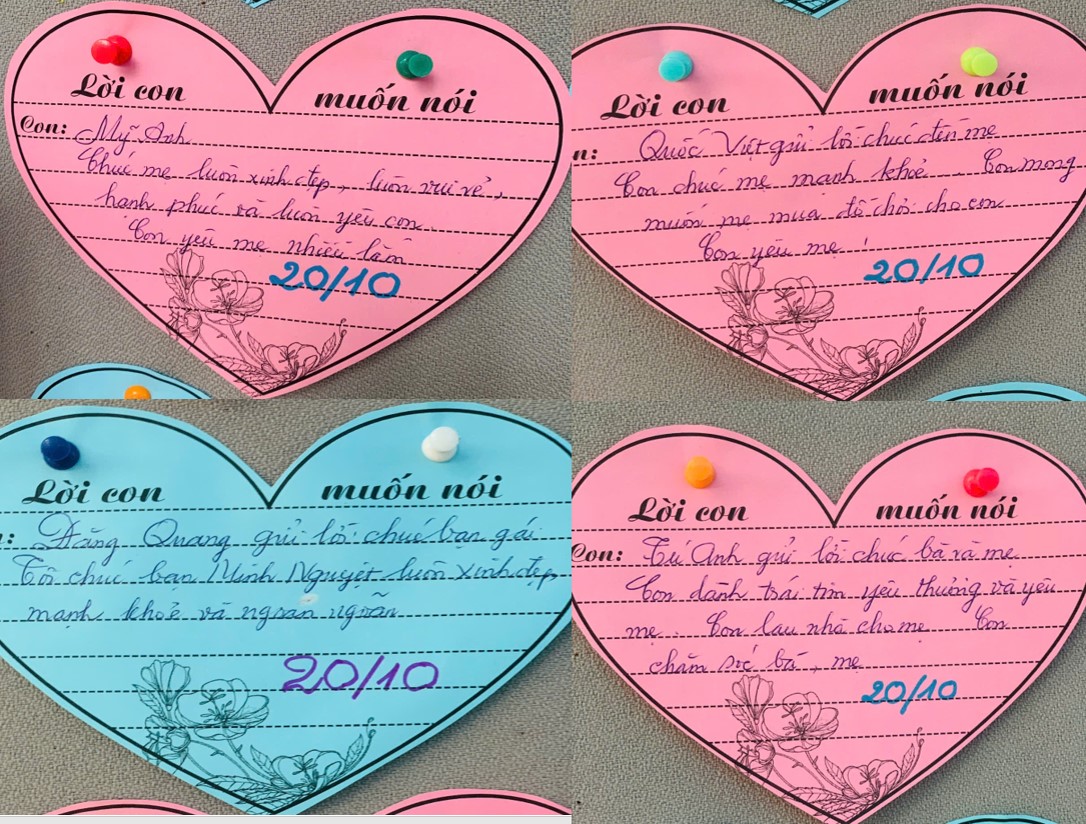 Lời con muốn nói
Con: Mỹ Anh
Chúc mẹ luôn xinh đẹp, luôn vui vẻ,
hạnh phúc và luôn yêu con.
Con yêu mẹ nhiều lắm
20/10
Lời con muốn nói
n: Quốc Việt gửi lời chúc đến mẹ
Con chúc mẹ mạnh khỏe. Con mong
muốn mẹ mua đồ chơi cho con
Con yêu mẹ!
20/10
Lời con muốn nói
: Đăng Quang gửi lời chúc bạn gái
Tôi chúc bạn Minh Nguyệt luôn xinh đẹp,
mạnh khoẻ và ngoan ngoãn
20/10
Lời con muốn nói
Con: Tú Anh gửi lời chúc bà và mẹ
Con dành trái tim yêu thương và yêu
mẹ. Con lau nhà cho mẹ Con
chăm sóc bà, mẹ
20/10